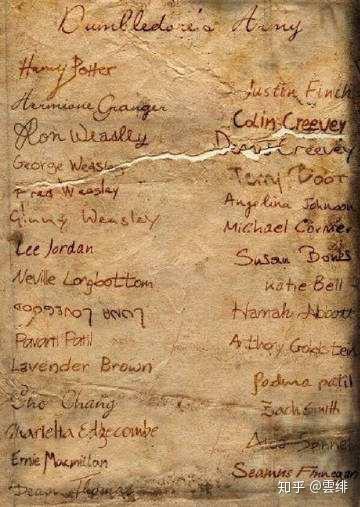 Dumbledore's Army
Harry Potter
Hermione Granger
Ron Weasley
George Weasley
Fred Weasley
Ginny Weasley
Lee Jordan
Neville Longbottom
Luna Lovegood
Parvati Patil
Lavender Brown
Cho Chang
Marietta Edgecombe
Ernie Macmillan
Dean Thomas
Justin Finch
Colin Creevey
Dennis Creevey
Terry Boot
Angelina Johnson
Michael Corner
Susan Bones
Katie Bell
Hannah Abbott
Anthony Goldstein
Padma patil
Zach Smith
Seamus Finnegan
知乎 @雲绯